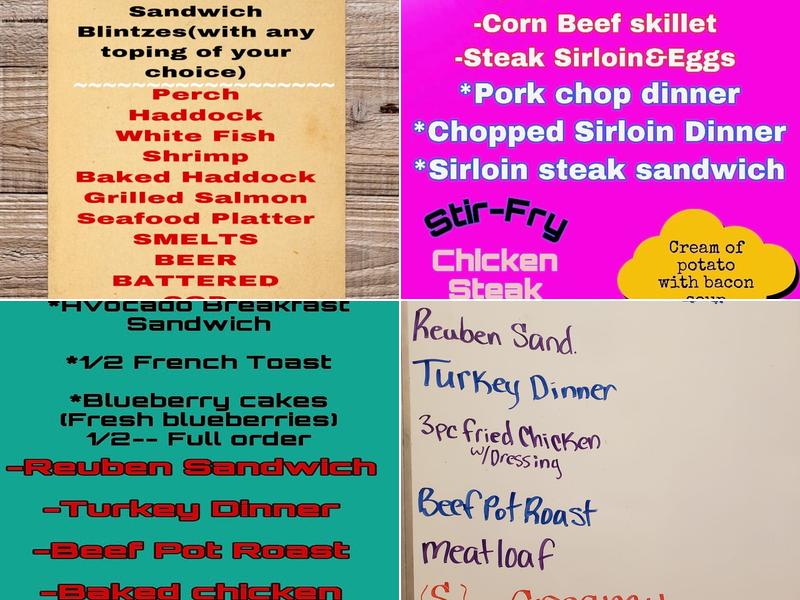 Sandwich
Blintzes(with any
toping of your
choice)
~~~~~~~~~~~~~~~~~~
Perch
Haddock
White Fish
Shrimp
Baked Haddock
Grilled Salmon
Seafood Platter
SMELTS
BEER
BATTERED
COD
-Corn Beef skillet
-Steak Sirloin&Eggs
*Pork chop dinner
*Chopped Sirloin Dinner
*Sirloin steak sandwich
Stir-Fry
Chicken
Steak
Cream of
potato
with bacon
soup
*Avocado Breakfast
Sandwich
*1/2 French Toast
*Blueberry cakes
(Fresh blueberries)
1/2-- Full order
-Reuben Sandwich
-Turkey Dinner
-Beef Pot Roast
-Baked chicken
Reuben Sand.
Turkey Dinner
3pc fried Chicken
w/Dressing
Beef Pot Roast
meatloaf
(S) Creamy